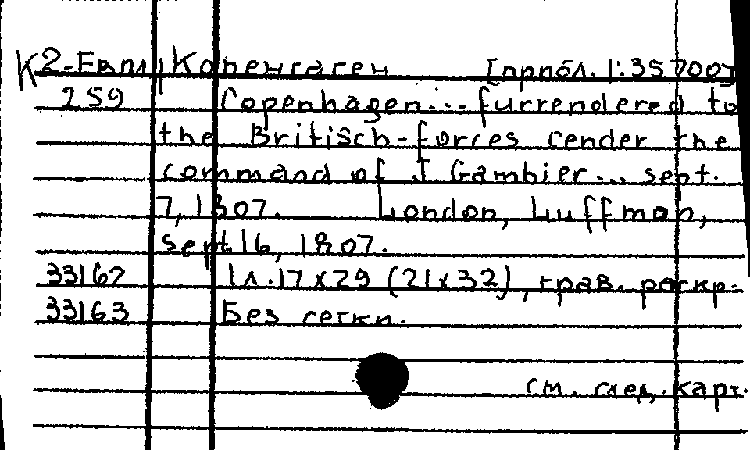 К2-Евпл Копенгаген [прибл. 1:35700]
259 Copenhagen... furrendered to
the Britisch-forces cender the
command of J Gambier... sept.
7, 1807. London, Luffman,
sept 16, 1807.
33167 1л. 17x29 (21x32), грав. раскр.
33163 Без сетки.
см. след. карт.